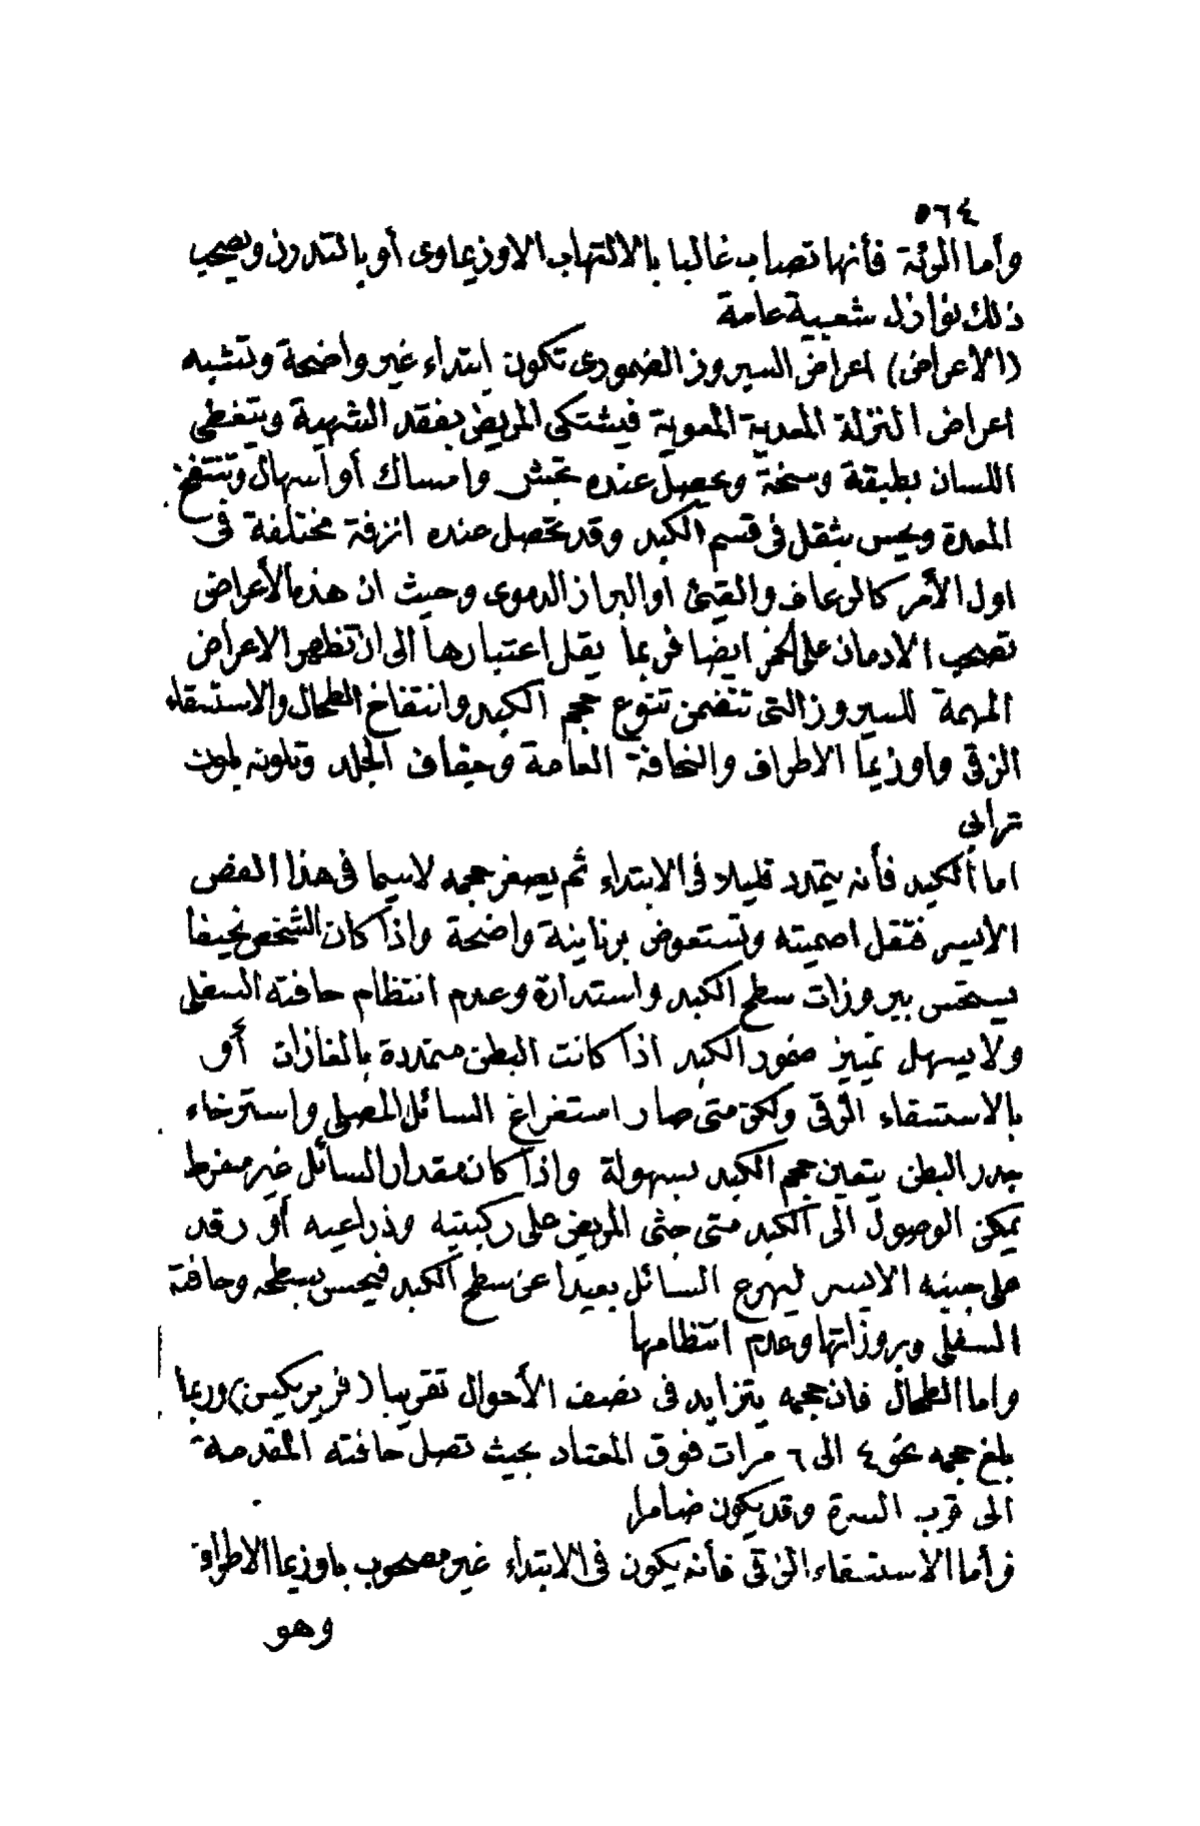 ٥٦٤
وأما الرئة فأنها تصاب غالبا بالالتهاب الاوزيماوى أو بالتدرن ويصحب
ذلك نوازل شعبية عامة
(الاعراض) اعراض السيروز الضمورى تكون ابتداء غير واضحة وتشبه
اعراض النزلة المعدية المعوية فيشتكى المريض بفقد الشهية ويتغطى
اللسان بطبقة وسخة ويحصل عنده تجش وامساك أو اسهال وتنتفخ
المعدة ويحس بثقل فى قسم الكبد وقد تحصل عنده انزفة مختلفة فى
اول الأمر كالرعاف والقيئ او البراز الدموى وحيث ان هذه الأعراض
تصحب الادمان على الخمر ايضا فربما يقل اعتبارها الى ان تظهر الاعراض
المهمة للسيروز التى تتضمن تنوع حجم الكبد وانتفاخ الطحال والاستسقاء
الزقى واوزيما الاطراف والنحافة العامة وجفاف الجلد وتلونه بلون
ترابى
اما الكبد فأنه يتمدد قليلا فى الابتداء ثم يصغر حجمه لاسيما فى هذا الفص
الايسر فتقل اصميته وتستعوض برنانية واضحة واذا كان الشخص نحيفا
يستحس ببروزات سطح الكبد واستدارة وعدم انتظام حافته السفلى
ولا يسهل تمييز ضمور الكبد اذا كانت البطن متمددة بالغازات أو
بالاستسقاء الزقى ولكن متى صار استفراغ السائل المصلى واسترخاء
جدر البطن يتعين حجم الكبد بسهولة واذا كان مقدار السائل غير مفرط
يمكن الوصول الى الكبد متى جثى المريض على ركبتيه وذراعيه أو رقد
على جبنه الايسر ليهرع السائل بعيدا عن سطح الكبد فيحس بسطحه وحافته
السفلى وبروزاتها وعدم انتظامها
واما الطحال فان حجمه يتزايد فى نصف الأحوال تقريبا (فريريكس) وربما
بلغ حجمه نحو ٤ الى ٦ مرات فوق المعتاد بحيث تصل حافته المقدمة
الى قرب السرة وقد يكون ضامرا
وأما الاستسقاء الزقى فأنه يكون فى الابتداء غير مصحوب باوزيما الاطراف
وهو